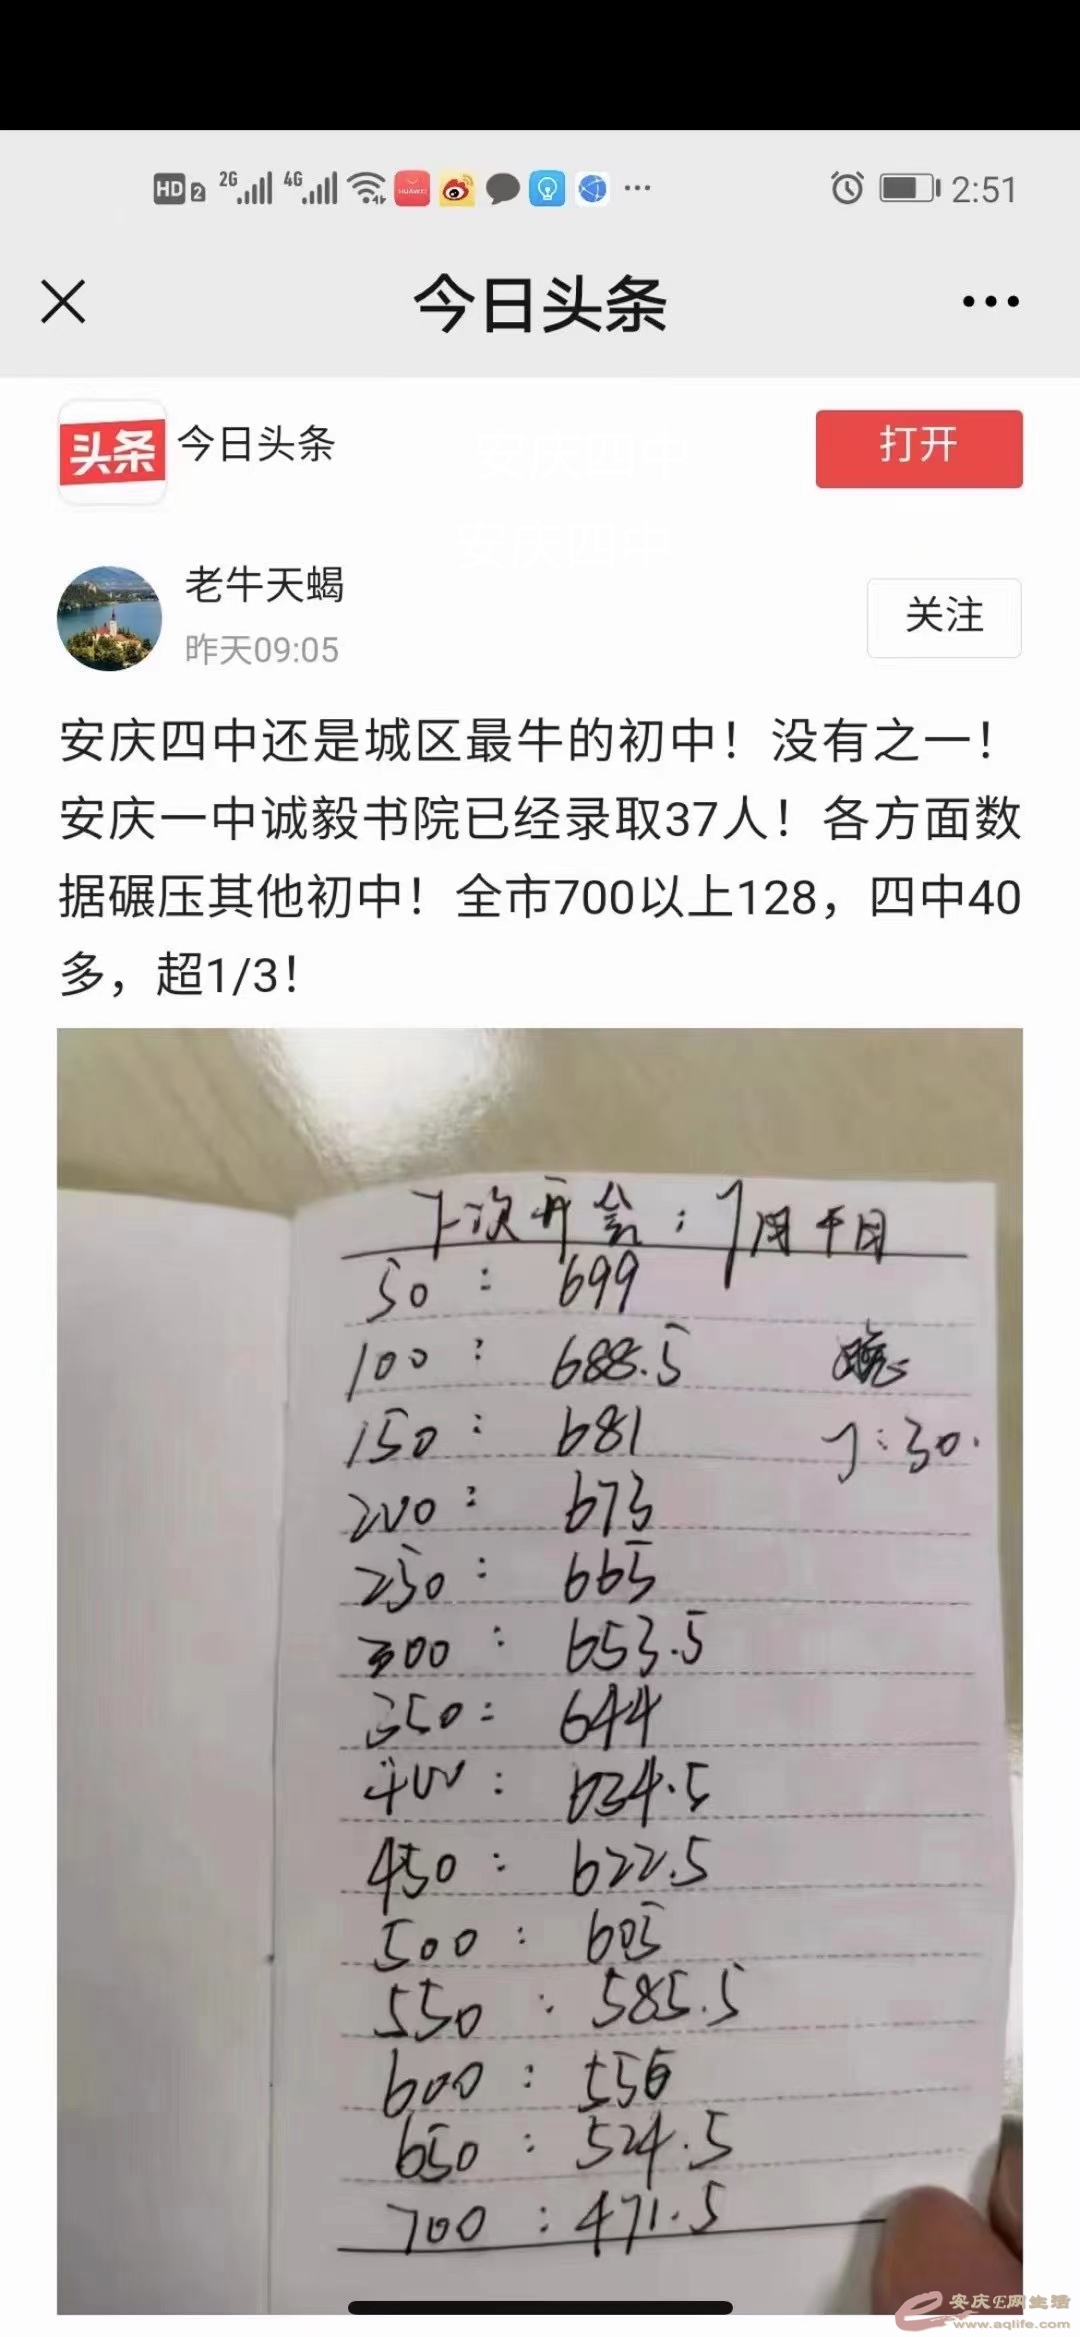 HD 2 2G 4G HUAWEI 2:51
今日头条
头条 今日头条 打开
安庆四中
安庆四中
老牛天蝎
昨天09:05
关注
安庆四中还是城区最牛的初中！没有之一！
安庆一中诚毅书院已经录取37人！各方面数
据碾压其他初中！全市700以上128，四中40
多，超1/3！
下次开会：7月
50：699
100：688.5 晚
150：681 7:30.
200：673
250：665
300：653.5
350：644
400：634.5
450：622.5
500：605
550：585.5
600：556
650：524.5
700：471.5
安庆E网生活
www.aqlife.com